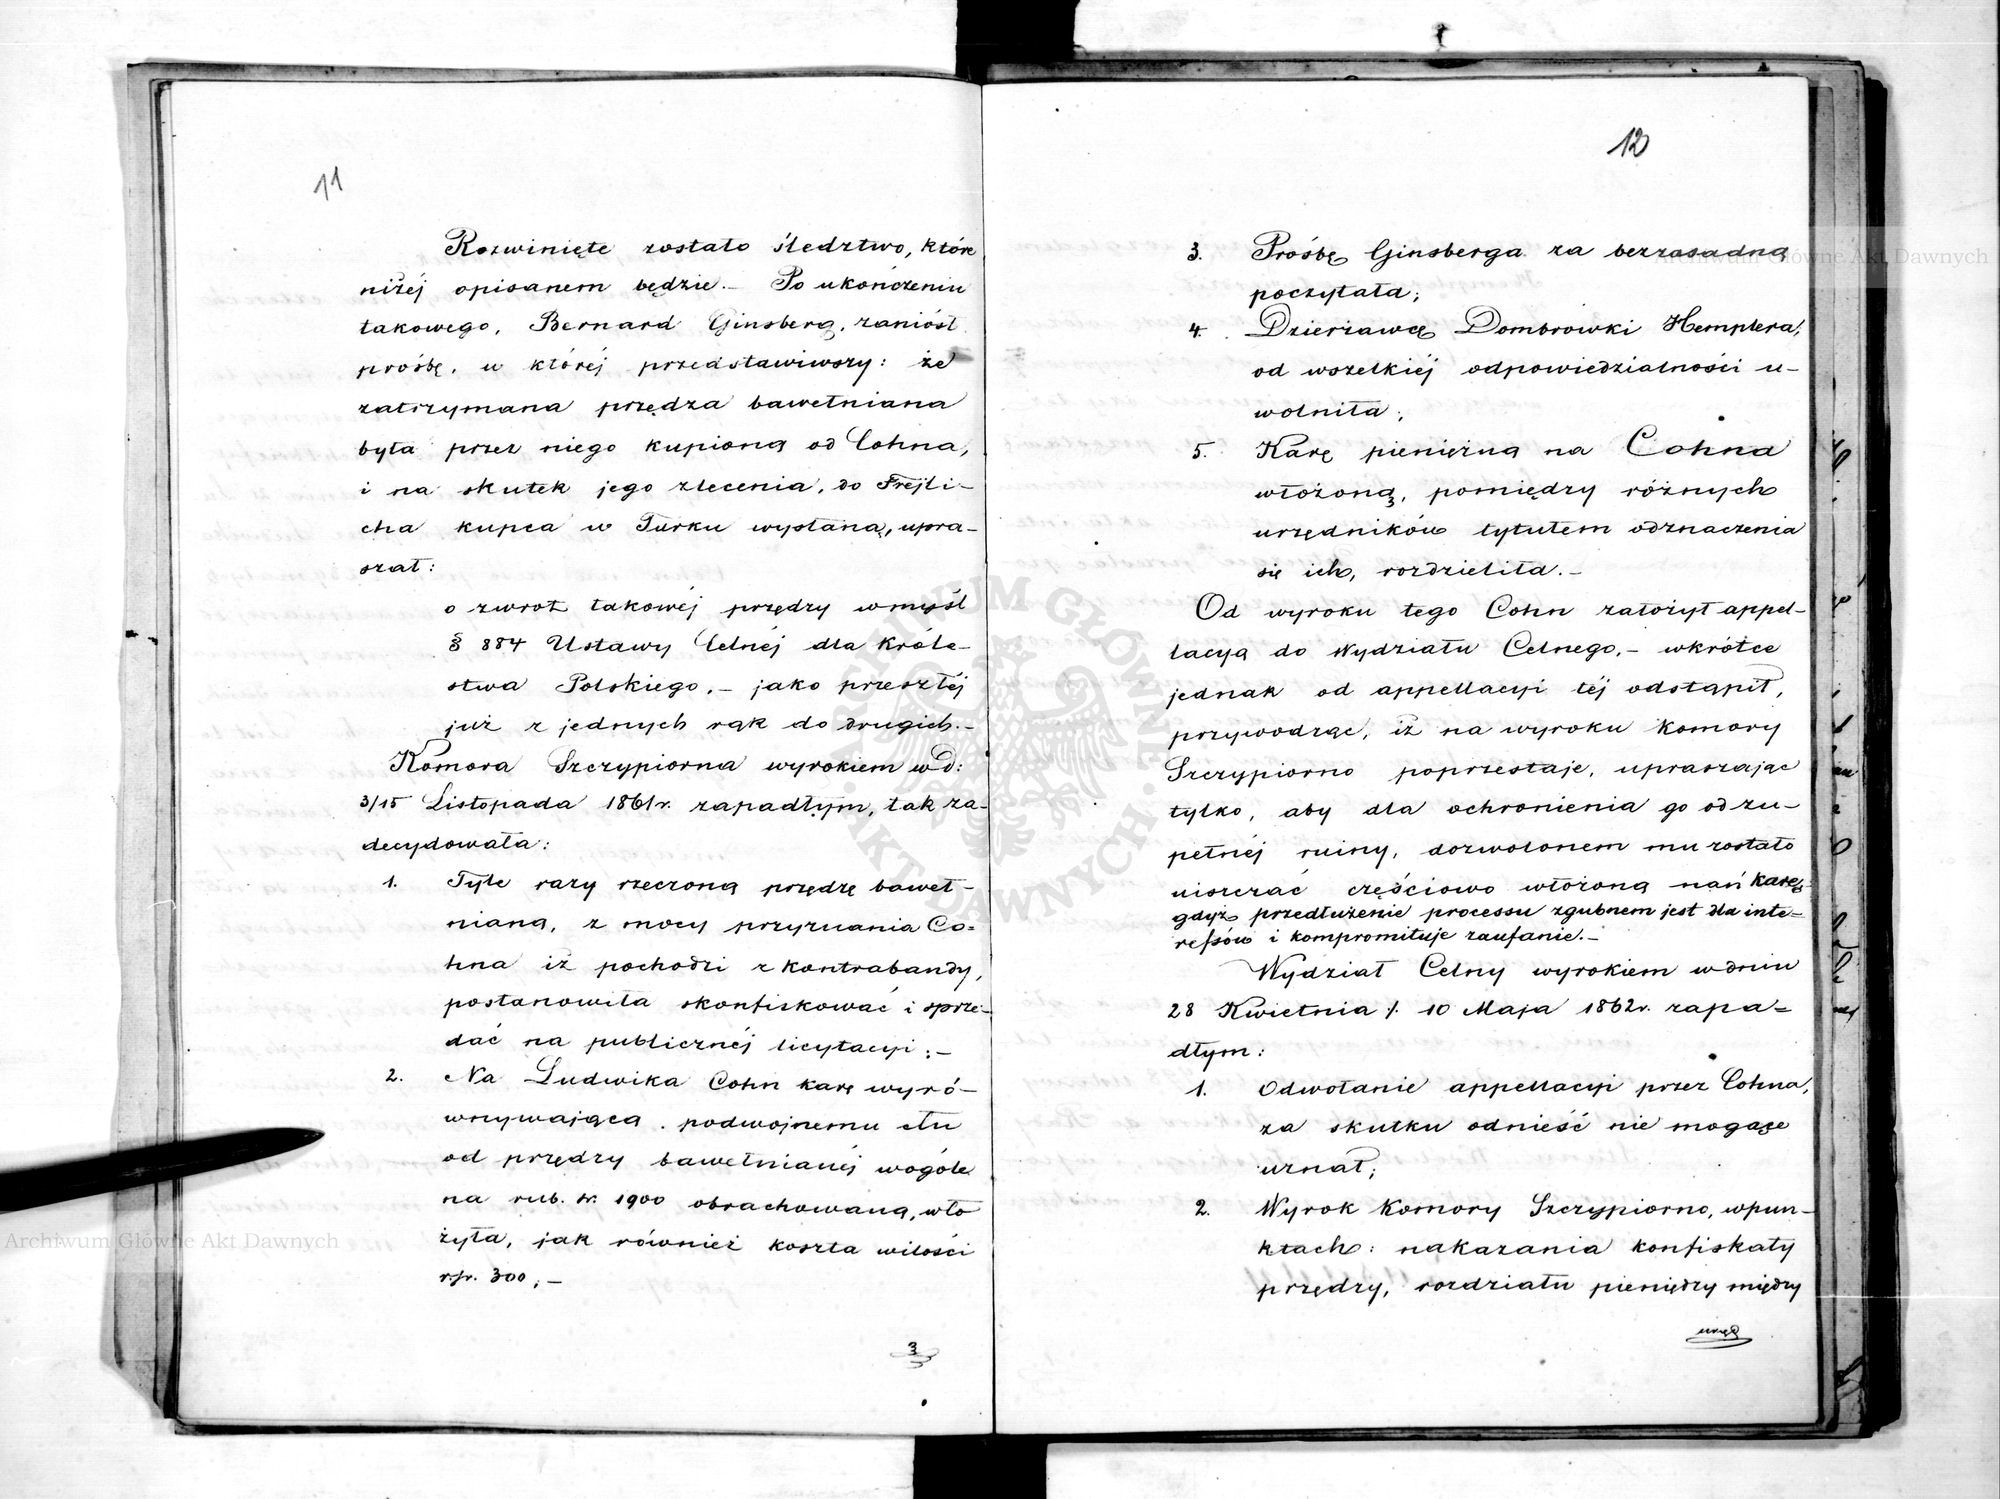 11
Rozwinięte zostało śledztwo, które
niżéj opisanem będzie. – Po ukończeniu
takowego, Bernard Ginsberg, zaniósł
prośbę, w któréj przedstawiwszy: że
zatrzymana przędza bawełniana
była przez niego kupioną od Cohna,
i na skutek jego zlecenia, do Frejli-
cha kupca w Turku wysłaną, upra-
szał:
o zwrot takowéj przędzy w myśl
§ 884 Ustawy Celnéj dla Króle-
stwa Polskiego, – jako przeszłéj
już z jednych rąk do drugich. –
Komora Szczypiorna wyrokiem w D:
3/15 Listopada 1861 r. zapadłym, tak za-
decydowała:
1. Tyle razy rzeczoną przędzę baweł-
nianą, z mocy przyznania Co-
hna iż pochodzi z kontrabandy,
postanowiła skonfiskować i sprze-
dać na publicznéj licytacyi; –
2. Na Ludwika Cohn karę wyró-
wnywającą podwojnemu cłu
od przędzy bawełnianéj wogóle
na rub. sr. 1900 obrachowaną, wło
żyła, jak również koszta w ilości
rsr. 300; –
3
12
3. Prośbę Ginsberga za bezzasadną
poczytała;
4. Dzierżawcę Dombrowki Hemplera,
od wszelkiéj odpowiedzialności u-
wolniła;
5. Karę pieniężną na Cohna
włożoną, pomiędzy różnych
urzędników tytułem odznaczenia
się ich, rozdzieliła. –
Od wyroku tego Cohn założył appel-
lacyą do Wydziału Celnego, – wkrótce
jednak od appellacyi téj odstąpił,
przywodząc, iż na wyroku Komory
Szczypiorno poprzestaje, upraszając
tylko, aby dla ochronienia go od zu-
pełnéj ruiny, dozwolonem mu zostało
uiszczać częściowo włożoną nań karę,
gdyż przedłużenie processu zgubnem jest dla inte-
ressów i kompromituje zaufanie. –
Wydział Celny wyrokiem w dniu
28 Kwietnia /. 10 Maja 1862 r. zapa-
dłym:
1. Odwołanie appellacyi przez Cohna,
za skutku odnieść nie mogące
uznał;
2. Wyrok Komory Szczypiorno, w pun-
ktach: nakazania konfiskaty
przędzy, rozdziału pieniędzy między
urzę
Archiwum Główne Akt Dawnych
Archiwum Główne Akt Dawnych
ARCHIWUM GŁÓWNE AKT DAWNYCH